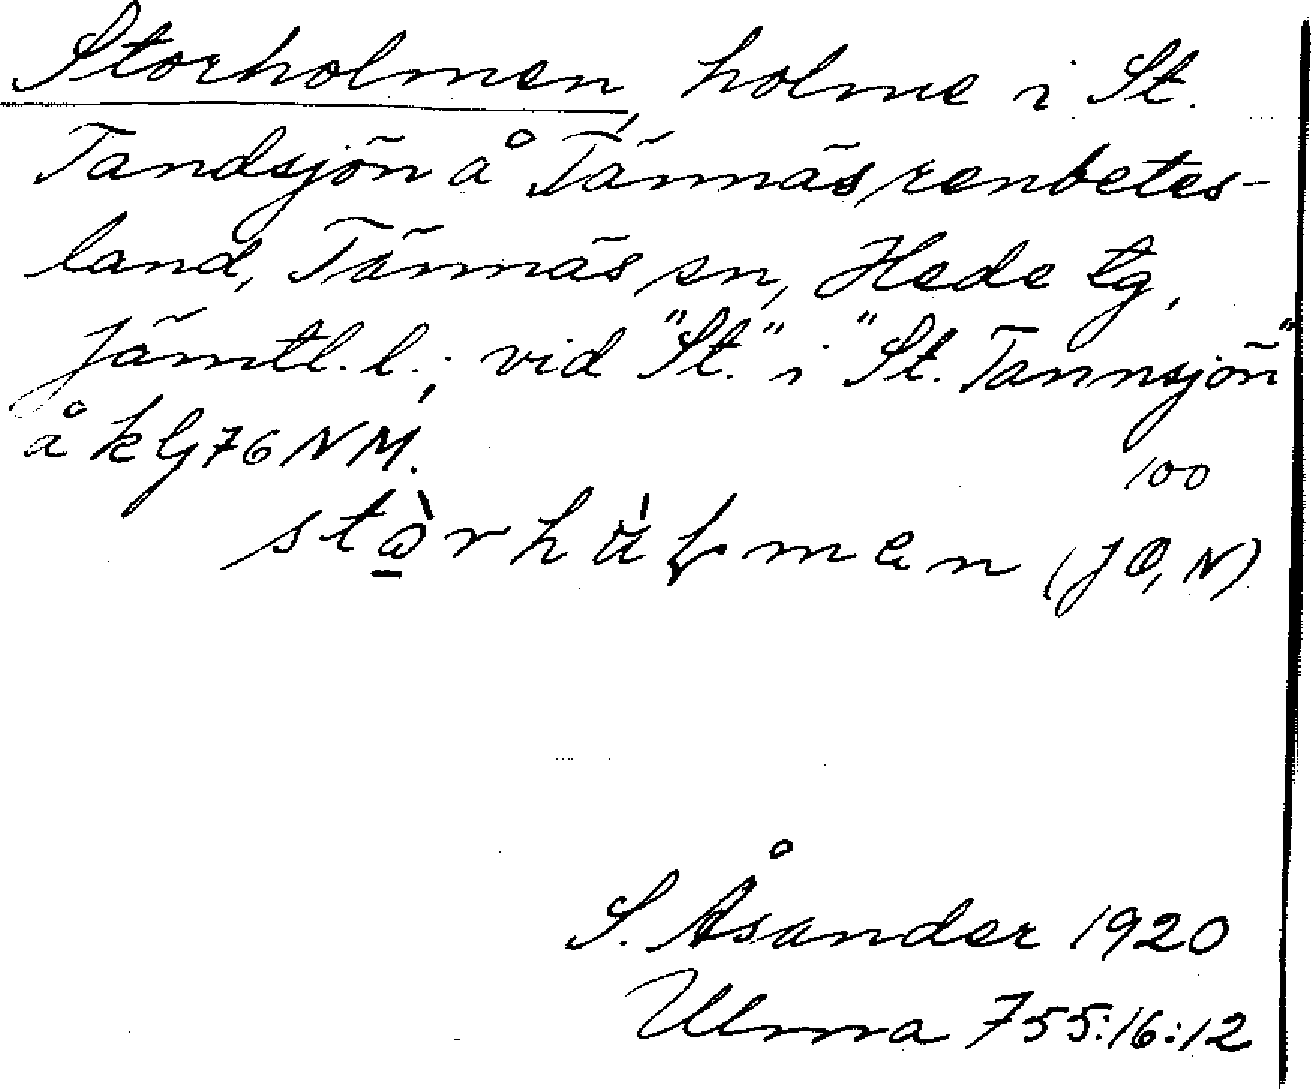 Storholmen, holme i St.
Tandsjön å Tännäs renbetes-
land, Tännäs sn, Hede tg,
Jämtl. l.; vid "St." i "St. Tannsjön"
å kbl 76 NM.
100
(JO, N)
S. Åsander 1920
Ulma 755:16:12